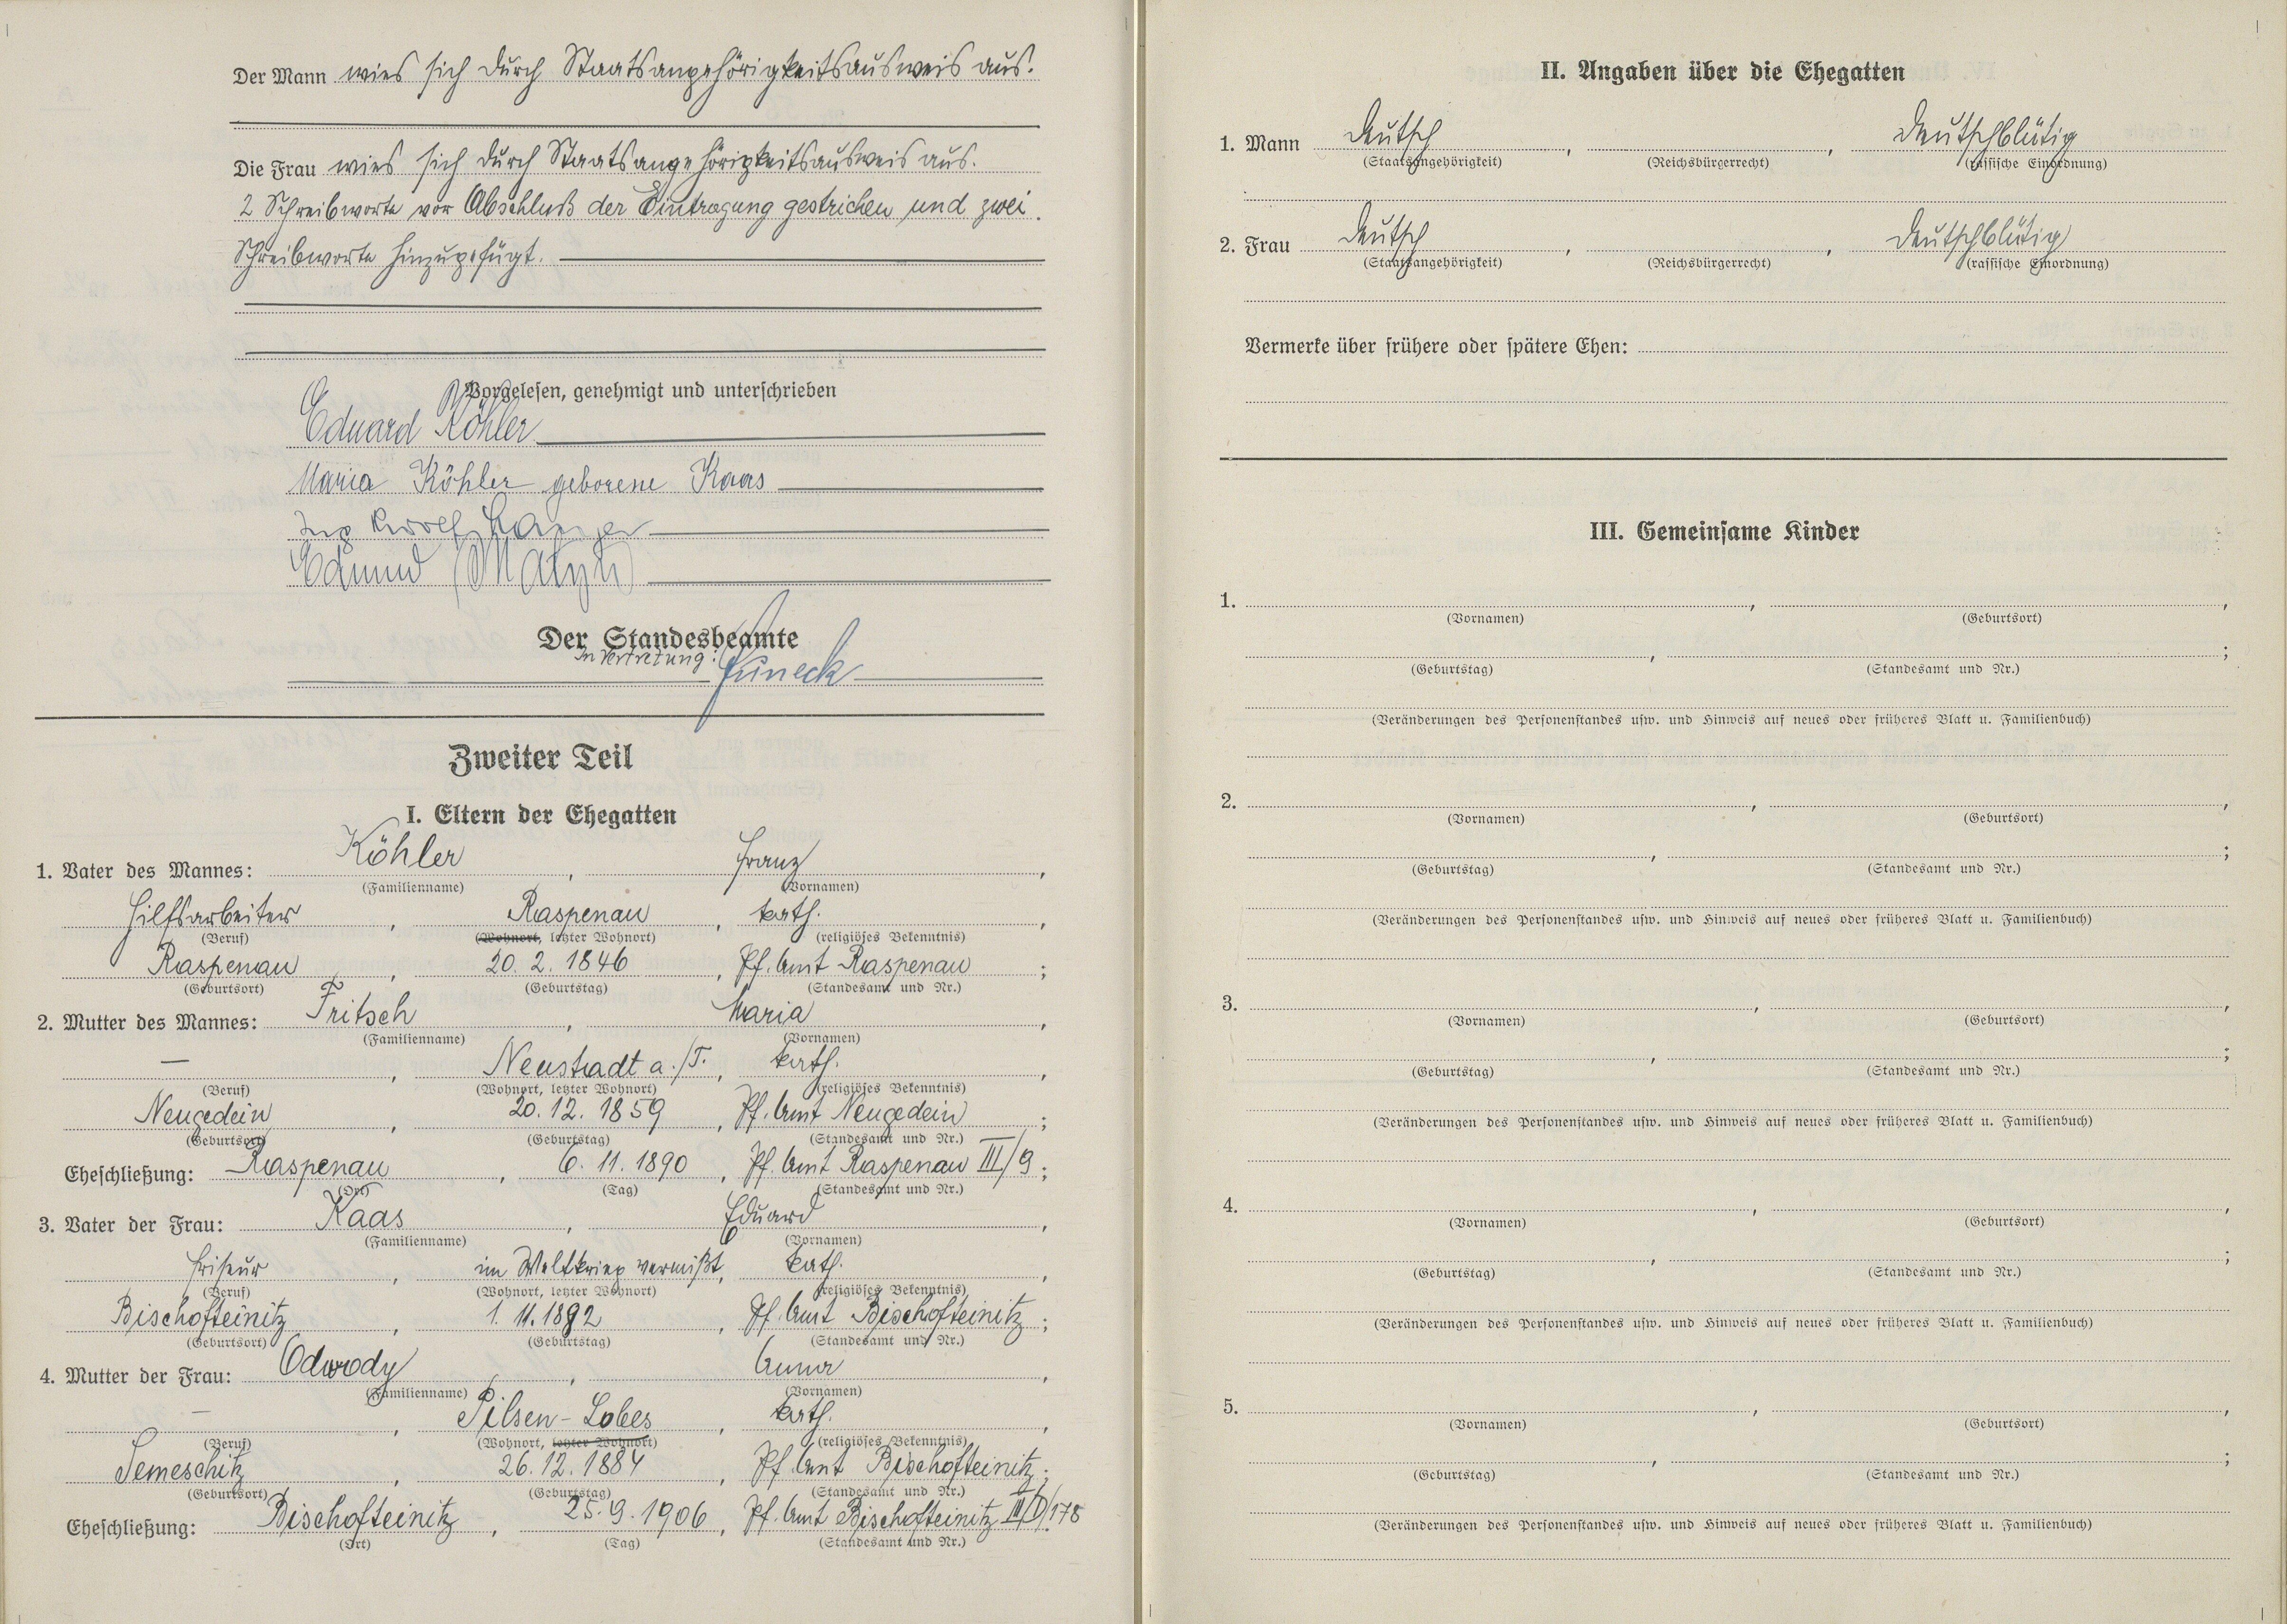 Der Mann wies sich durch Staatsangehörigkeitsausweis aus.
Die Frau wies sich durch Staatsangehörigkeitsausweis aus.
2 Schreibworte vor Abschluß der Eintragung gestrichen und zwei
Schreibworte hinzugefügt.
Vorgelesen, genehmigt und unterschrieben
Eduard Köhler
Maria Köhler geborene Kaas
Ing
Edmund
Der Standesbeamte
In Vertretung:
Zweiter Teil
I. Eltern der Ehegatten
1. Vater des Mannes: Köhler, Franz,
(Familienname) (Vornamen)
Hilfsarbeiter, Raspenau, kath.,
(Beruf) (Wohnort, letzter Wohnort) (religiöses Bekenntnis)
Raspenau, 20. 2. 1846, Pf. Amt Raspenau;
(Geburtsort) (Geburtstag) (Standesamt und Nr.)
2. Mutter des Mannes: Fritsch, Maria,
(Familienname) (Vornamen)
—, Neustadt a./T., kath.,
(Beruf) (Wohnort, letzter Wohnort) (religiöses Bekenntnis)
Neugedein, 20. 12. 1859, Pf. Amt Neugedein;
(Geburtsort) (Geburtstag) (Standesamt und Nr.)
Eheschließung: Raspenau, 6. 11. 1890, Pf. Amt Raspenau III/9;
(Ort) (Tag) (Standesamt und Nr.)
3. Vater der Frau: Kaas, Eduard,
(Familienname) (Vornamen)
Friseur, im Weltkrieg vermißt, kath.,
(Beruf) (Wohnort, letzter Wohnort) (religiöses Bekenntnis)
Bischofteinitz, 1. 11. 1882, Pf. Amt Bischofteinitz;
(Geburtsort) (Geburtstag) (Standesamt und Nr.)
4. Mutter der Frau: Odwody, Anna,
(Familienname) (Vornamen)
—, Pilsen-Lobes, kath.,
(Beruf) (Wohnort, letzter Wohnort) (religiöses Bekenntnis)
Semeschitz, 26. 12. 1884, Pf. Amt Bischofteinitz;
(Geburtsort) (Geburtstag) (Standesamt und Nr.)
Eheschließung: Bischofteinitz, 25. 9. 1906, Pf. Amt Bischofteinitz
(Ort) (Tag) (Standesamt und Nr.)
II. Angaben über die Ehegatten
1. Mann Deutsch, , Deutschblütig
(Staatsangehörigkeit) (Reichsbürgerrecht) (rassische Einordnung)
2. Frau Deutsch, , Deutschblütig
(Staatsangehörigkeit) (Reichsbürgerrecht) (rassische Einordnung)
Vermerke über frühere oder spätere Ehen:
III. Gemeinsame Kinder
1. , ,
(Vornamen) (Geburtsort)
, ;
(Geburtstag) (Standesamt und Nr.)
(Veränderungen des Personenstandes usw. und Hinweis auf neues oder früheres Blatt u. Familienbuch)
2. , ,
(Vornamen) (Geburtsort)
, ;
(Geburtstag) (Standesamt und Nr.)
(Veränderungen des Personenstandes usw. und Hinweis auf neues oder früheres Blatt u. Familienbuch)
3. , ,
(Vornamen) (Geburtsort)
, ;
(Geburtstag) (Standesamt und Nr.)
(Veränderungen des Personenstandes usw. und Hinweis auf neues oder früheres Blatt u. Familienbuch)
4. , ,
(Vornamen) (Geburtsort)
, ;
(Geburtstag) (Standesamt und Nr.)
(Veränderungen des Personenstandes usw. und Hinweis auf neues oder früheres Blatt u. Familienbuch)
5. , ,
(Vornamen) (Geburtsort)
, ;
(Geburtstag) (Standesamt und Nr.)
(Veränderungen des Personenstandes usw. und Hinweis auf neues oder früheres Blatt u. Familienbuch)